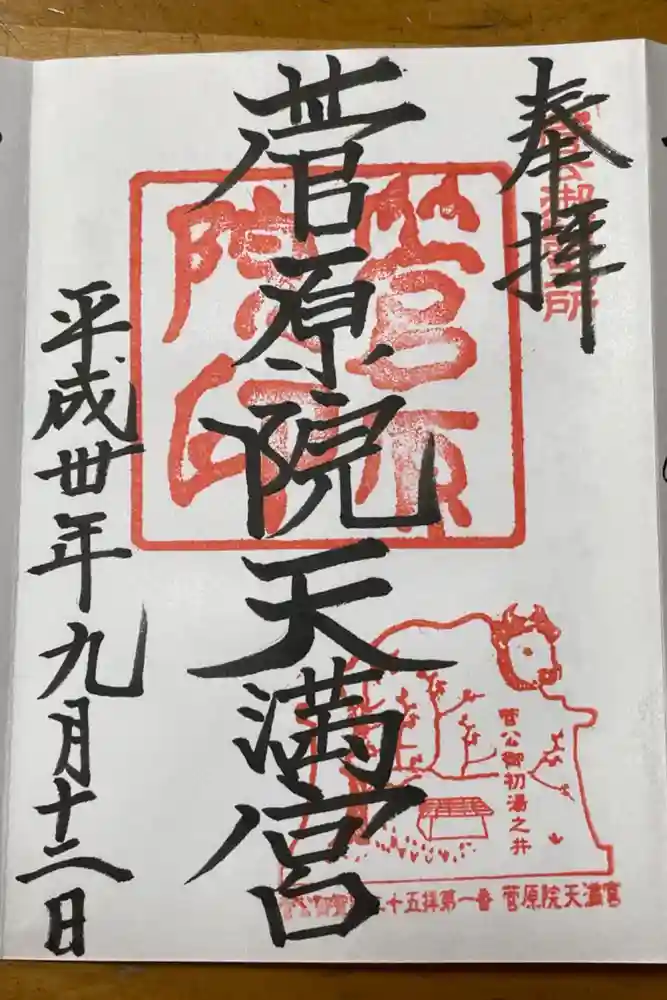 奉拝
菅原院天満宮
平成卅年九月十二日
菅原院印
菅公御初湯之井
二十五拝第一番 菅原院天満宮